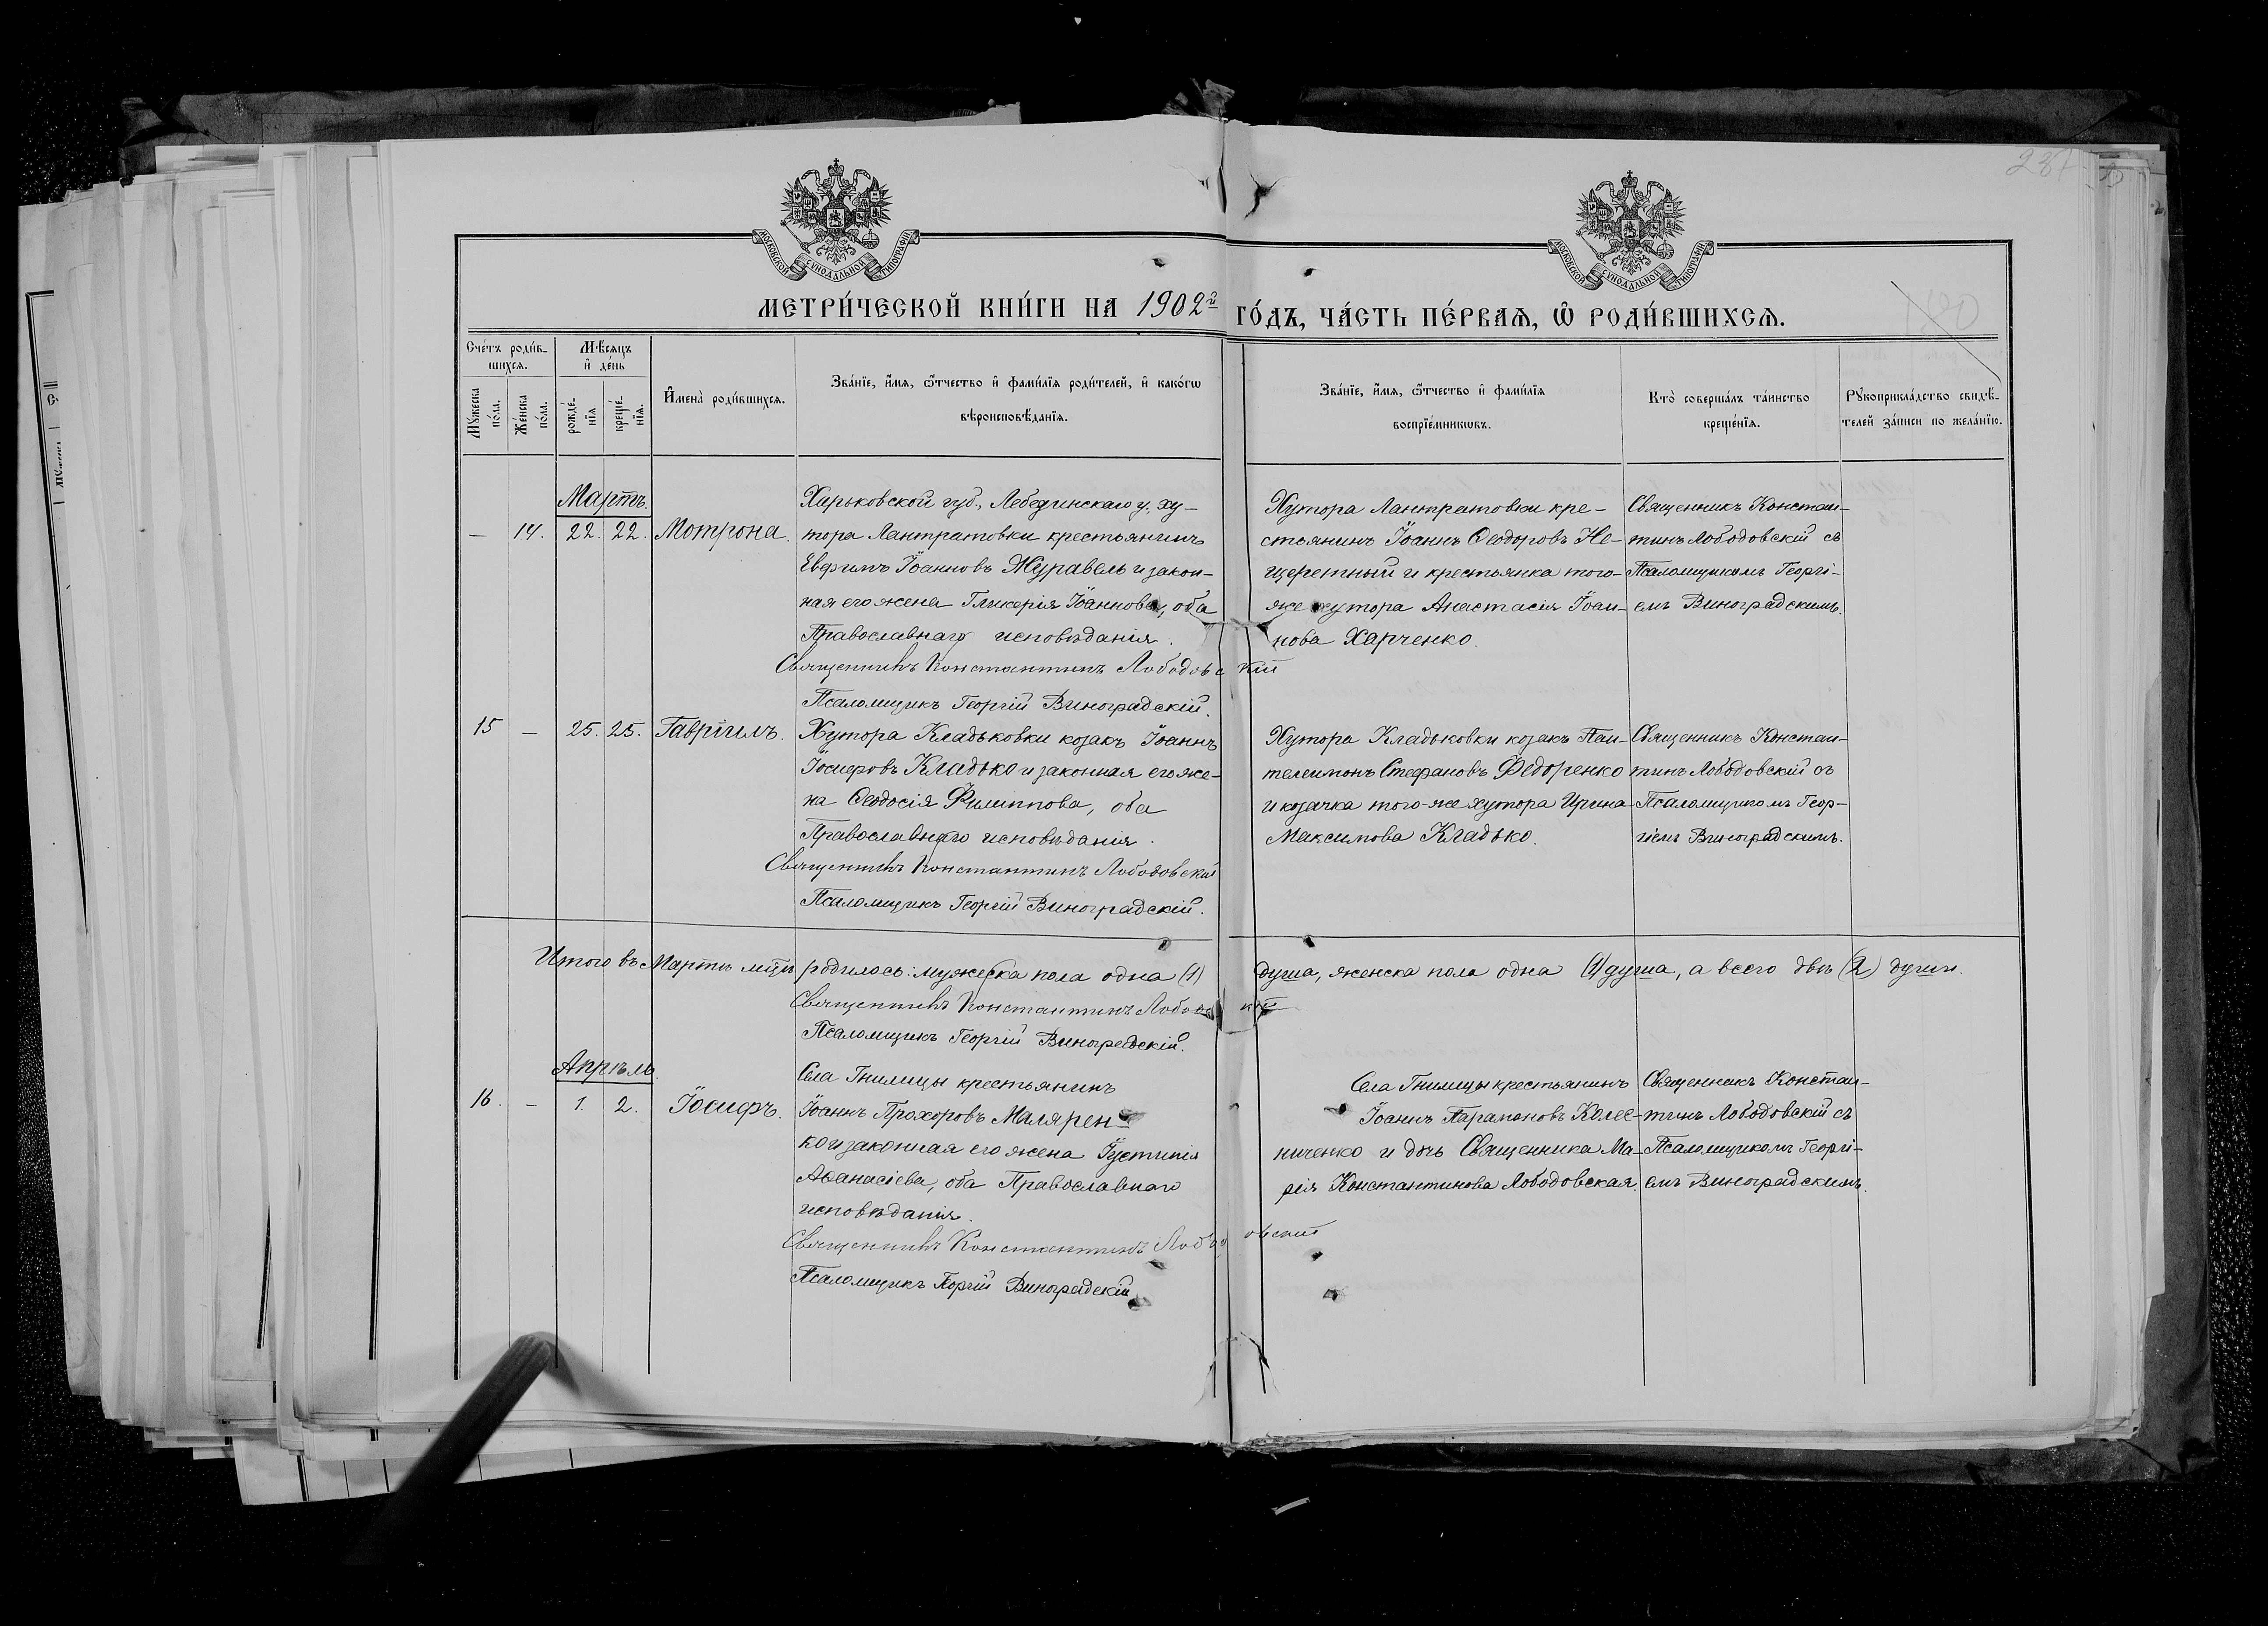 МОСКОВСКОЙ СУНОДАЛЬНОЙ ТИПОГРАФІИ
МОСКОВСКОЙ СУНОДАЛЬНОЙ ТИПОГРАФІИ
МЕТРИ́ЧЕСКОЙ КНИ́ГИ НА 1902й ГО́ДЪ, ЧА́СТЬ ПЕ́РВАѦ, Ѡ҆ РОДИ́ВШИХСѦ.
Сче́тъ роди́в-
шихсѧ.
Мꙋжеска
по́ла.
Же́нска
по́ла.
Мѣ́сѧцъ
и҆ де́нь
рожде́-
нїѧ
креще́-
нїѧ.
И҆мена̀ роди́вшихсѧ.
Зва́нїе, и҆́мѧ, ѻ҆́тчество и҆ фами́лїѧ роди́телей, и҆ како́гѡ
вѣроисповѣ́данїѧ.
Зва́нїе, и҆́мѧ, ѻ҆́тчество и҆ фами́лїѧ
воспрїе́мникѡвъ.
Кто̀ соверша́лъ та́инство
креще́нїѧ.
Рꙋкоприкла́дство свидѣ́-
телей за́писи по жела́нїю.
Мартъ.
— 14. 22. 22. Мотрона.
Харьковской губ., Лебединскаго у. ху-
тора Лантратовки крестьянинъ
Евфимъ Іоанновъ Журавель и закон-
ная его жена Гликерія Іоаннова, оба
Православнаго исповѣданія.
Священникъ Константинъ Лободовскій
Псаломщикъ Георгій Виноградскій.
Хутора Лантратовки кре-
стьянинъ Іоаннъ Ѳеодоровъ Не-
щеретный и крестьянка того-
же хутора Анастасія Іоан-
нова Харченко.
Священникъ Констан-
тинъ Лободовскій съ
Псаломщикомъ Георгі-
емъ Виноградскимъ.
15 — 25. 25. Гавріилъ.
Хутора Кладьковки козакъ Іоаннъ
Іосифовъ Кладько и законная его же-
на Ѳеодосія Филиппова, оба
Православнаго исповѣданія.
Священникъ Константинъ Лободовскій
Псаломщикъ Георгій Виноградскій.
Хутора Кладьковки козакъ Пан-
телеимонъ Стефановъ Федоренко
и козачка того-же хутора Ирина
Максимова Кладько.
Священникъ Констан-
тинъ Лободовскій съ
Псаломщикомъ Геор-
гіемъ Виноградскимъ.
Итого въ Мартѣ мцѣ родилось: мужеска пола одна (1) душа, женска пола одна (1) душа, а всего двѣ (2) души.
Священникъ Константинъ
Псаломщикъ Георгій Виноградскій.
Апрѣль.
16. — 1. 2. Іосифъ.
Села Гнилицы крестьянинъ
Іоаннъ Прохоровъ Малярен-
ко и законная его жена Іустинія
Аѳанасіева, оба Православнаго
исповѣданія.
Священникъ Константинъ Лободовскій
Псаломщикъ Георгій Виноградскій
Села Гнилицы крестьянинъ
Іоаннъ Парамоновъ Колес-
ниченко и дочь Священника Ма-
рія Константинова Лободовская.
Священникъ Констан-
тинъ Лободовскій съ
Псаломщикомъ Георгі-
емъ Виноградскимъ.